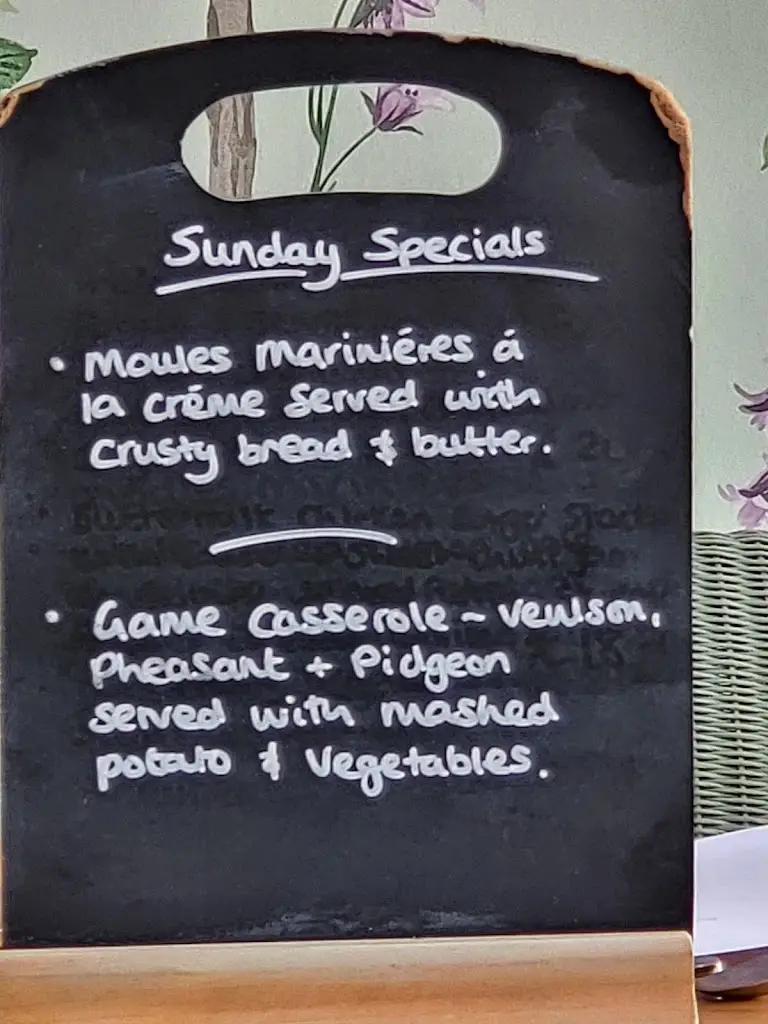 Sunday Specials
• Moules Mariniéres á
la créme served with
crusty bread & butter.
• Game Casserole ~ Venison,
Pheasant + Pidgeon
served with mashed
potato & Vegetables.